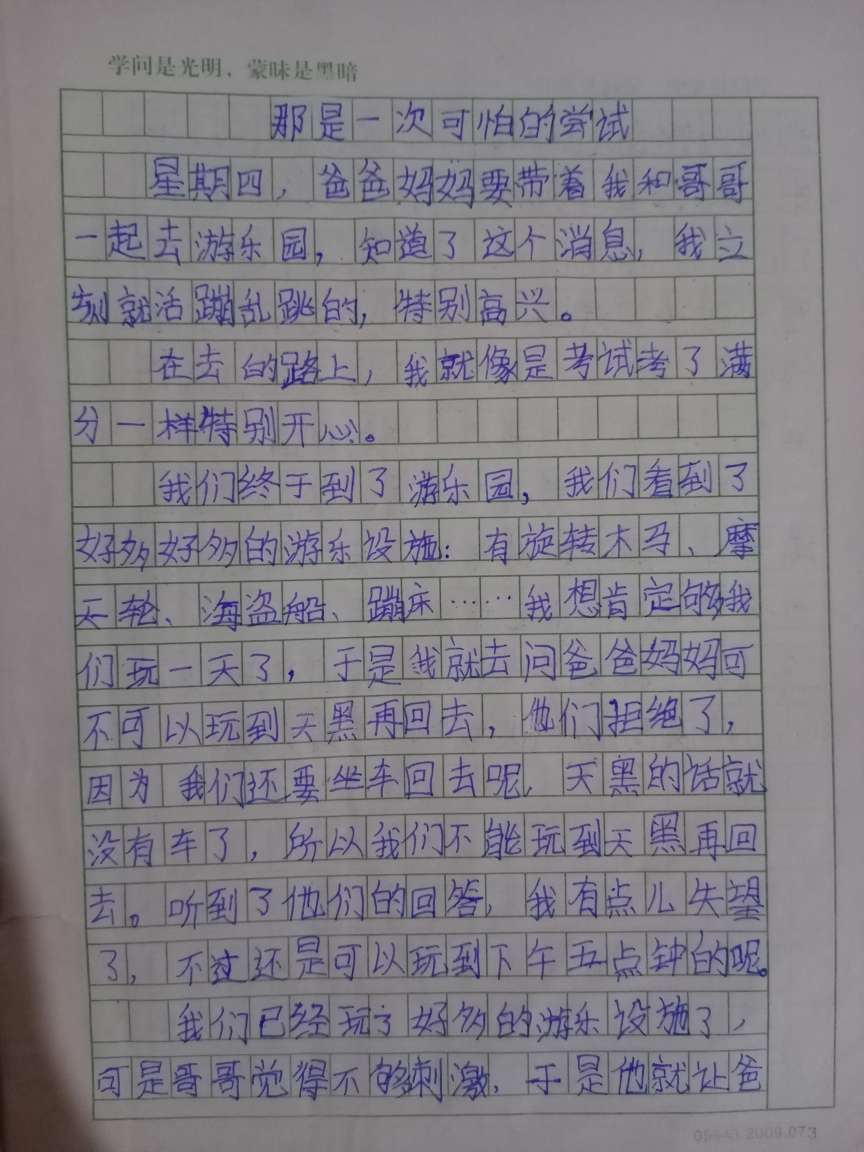 学问是光明，蒙昧是黑暗
那是一次可怕的尝试
星期四，爸爸妈妈要带着我和哥哥
一起去游乐园，知道了这个消息，我立
刻就活蹦乱跳的，特别高兴。
在去的路上，我就像是考试考了满
分一样特别开心。
我们终于到了游乐园，我们看到了
好多好多的游乐设施：有旋转木马、摩
天轮、海盗船、蹦床……我想肯定够我
们玩一天了，于是我就去问爸爸妈妈可
不可以玩到天黑再回去，他们拒绝了，
因为我们还要坐车回去呢，天黑的话就
没有车了，所以我们不能玩到天黑再回
去。听到了他们的回答，我有点儿失望
了，不过还是可以玩到下午五点钟的呢。
我们已经玩了好多的游乐设施了，
可是哥哥觉得不够刺激，于是他就让爸
2009.073